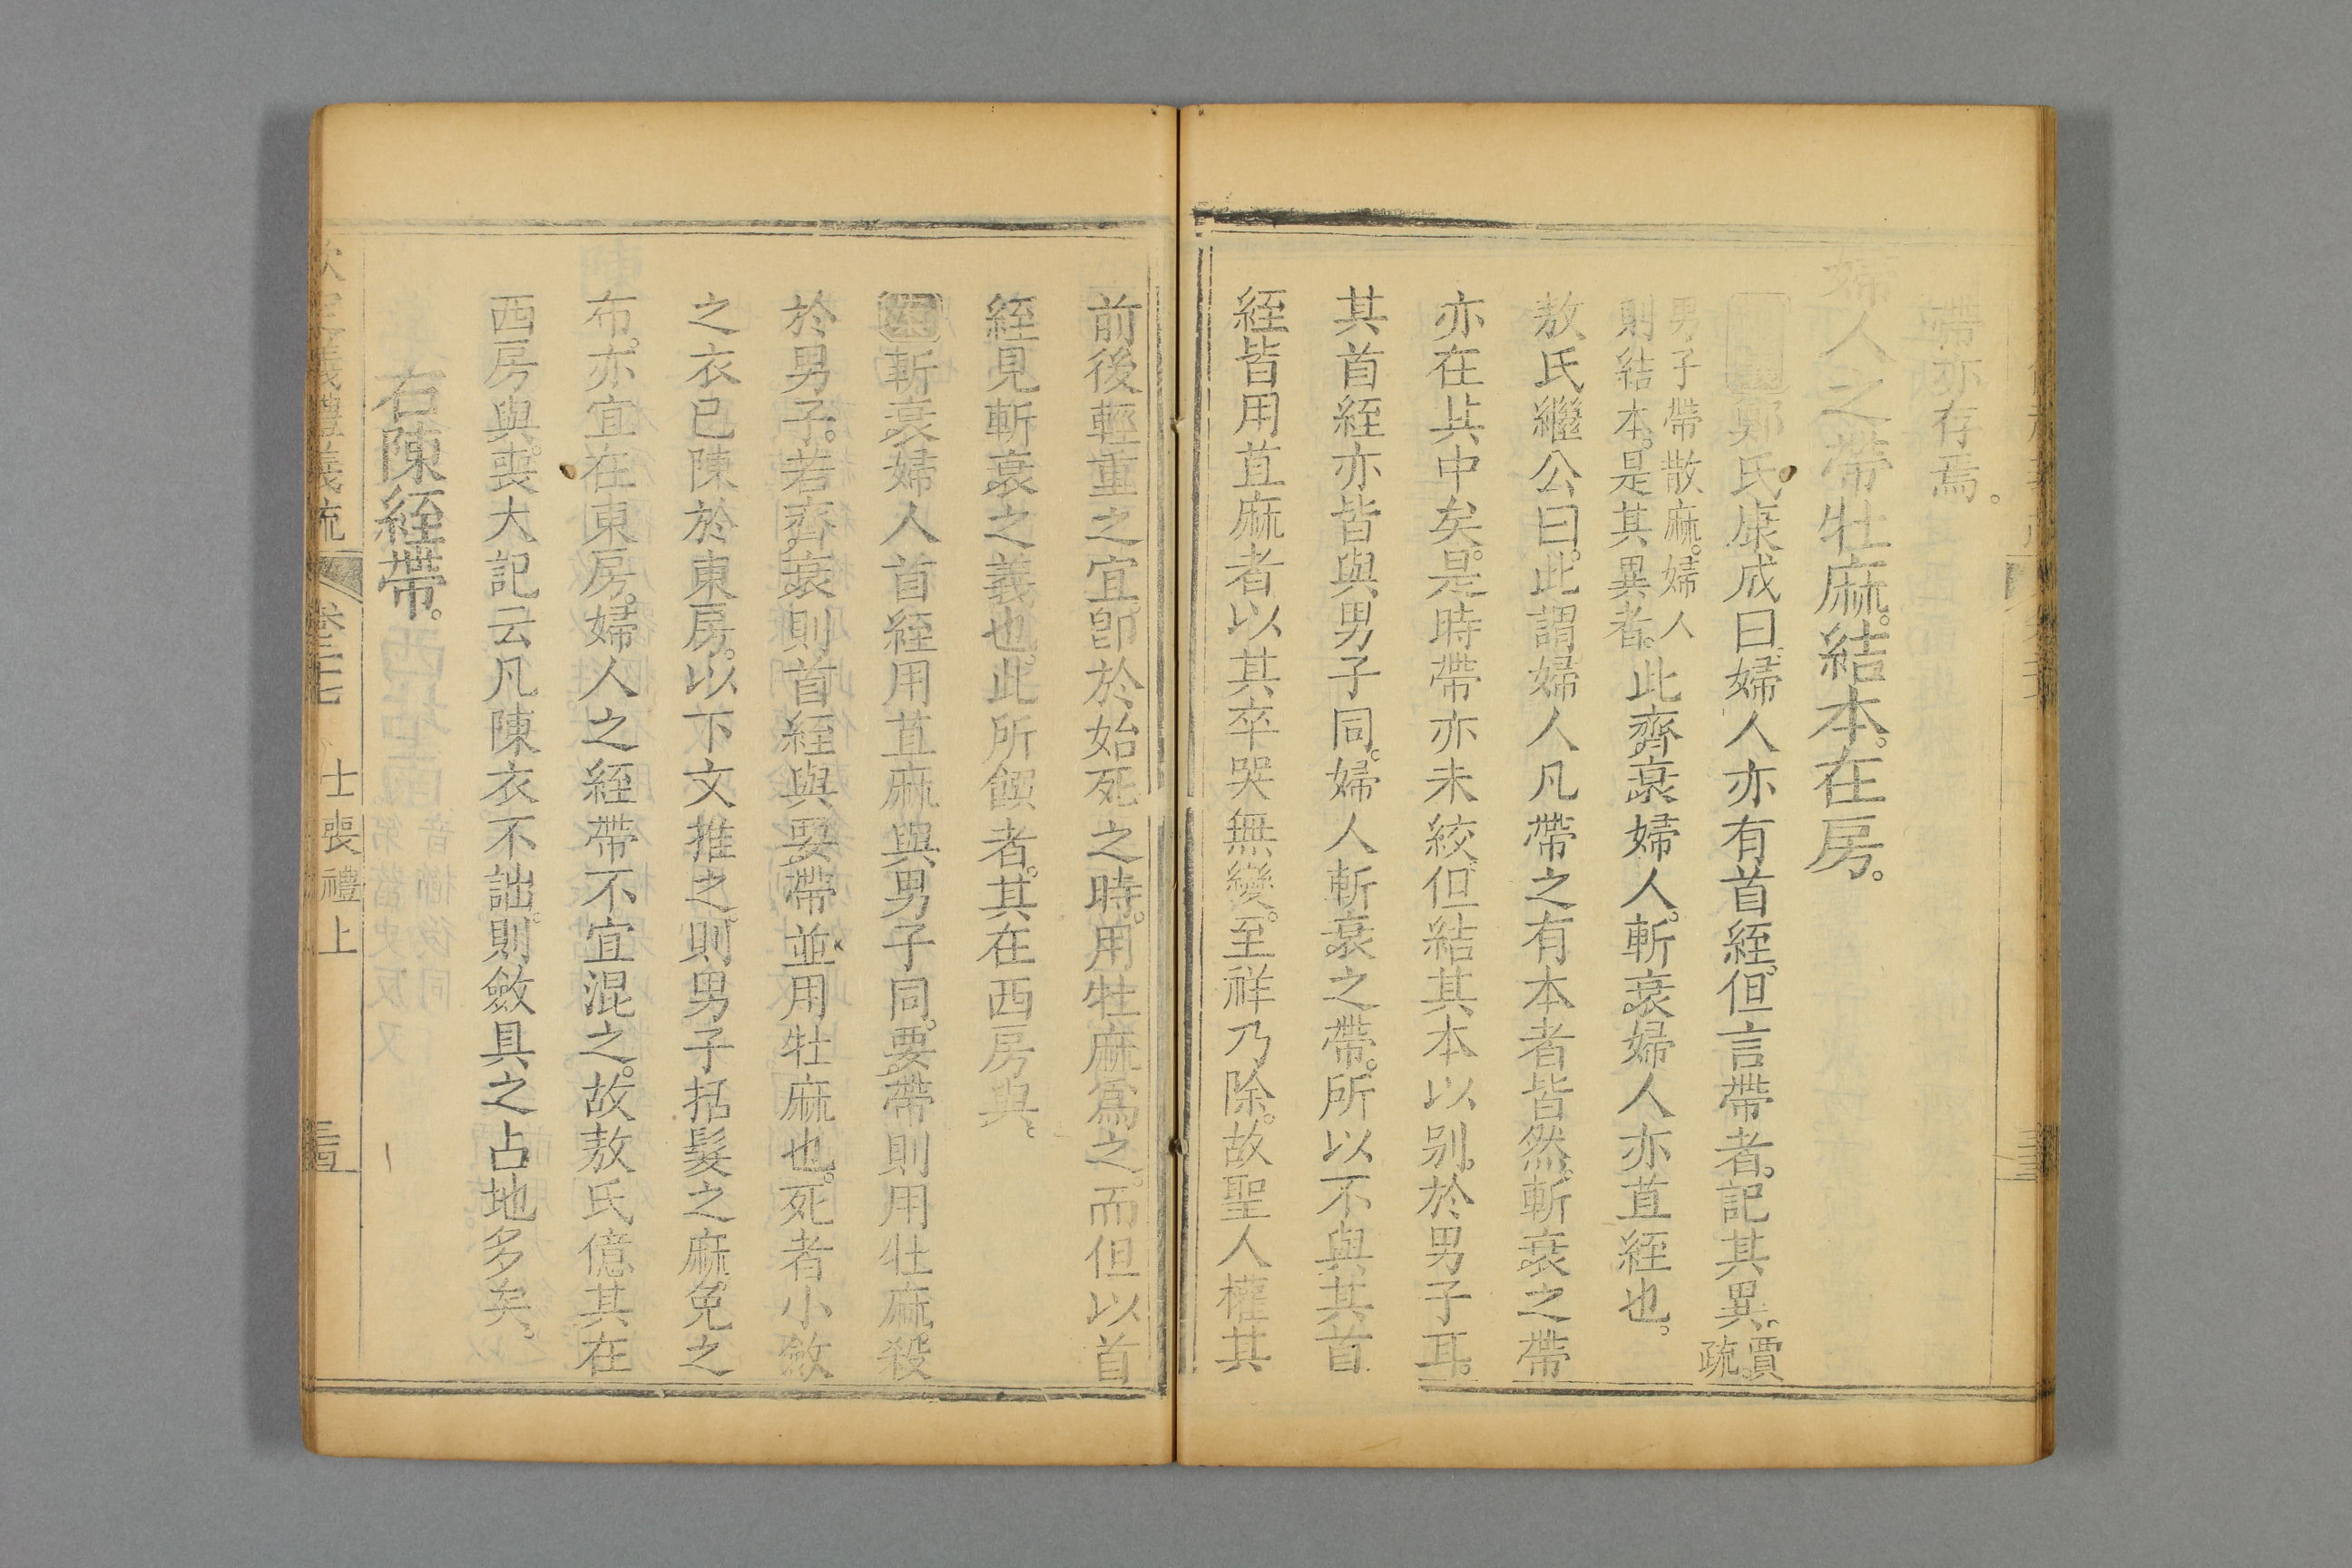 帶亦存焉。
婦人之帶牡麻。結本。在房。
鄭氏康成曰。婦人亦有首絰。但言帶者。記其異。賈疏。
男子帶散麻。婦人
則結本。是其異者。此齊衰婦人。斬衰婦人亦苴絰也。
敖氏繼公曰。此謂婦人凡帶之有本者皆然。斬衰之帶
亦在其中矣。是時帶亦未絞。但結其本以别於男子耳。
其首絰亦皆與男子同。婦人斬衰之帶。所以不與其首
絰皆用苴麻者以其卒哭無變。至祥乃除。故聖人權其
前後輕重之宜。卽於始死之時。用牡麻爲之。而但以首
絰見斬衰之義也。此所饌者。其在西房與。
斬衰婦人首絰用苴麻與男子同。要帶則用牡麻殺
於男子。若齊衰則首絰與要帶並用牡麻也。死者小斂
之衣已陳於東房。以下文推之。則男子括髮之麻免之
布。亦宜在東房。婦人之絰帶不宜混之。故敖氏億其在
西房與。喪大記云凡陳衣不詘。則斂具之占地多矣。
右陳絰帶。
士喪禮上